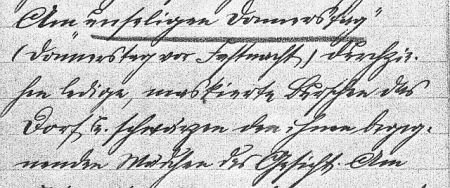 Am „unseligen Donnerstag“
(Donnerstag vor Fastnacht) durchzie-
hen ledige, maskierte Burschen das
Dorf u. schwärzen den ihnen begeg-
nenden Mädchen das Gesicht. Am